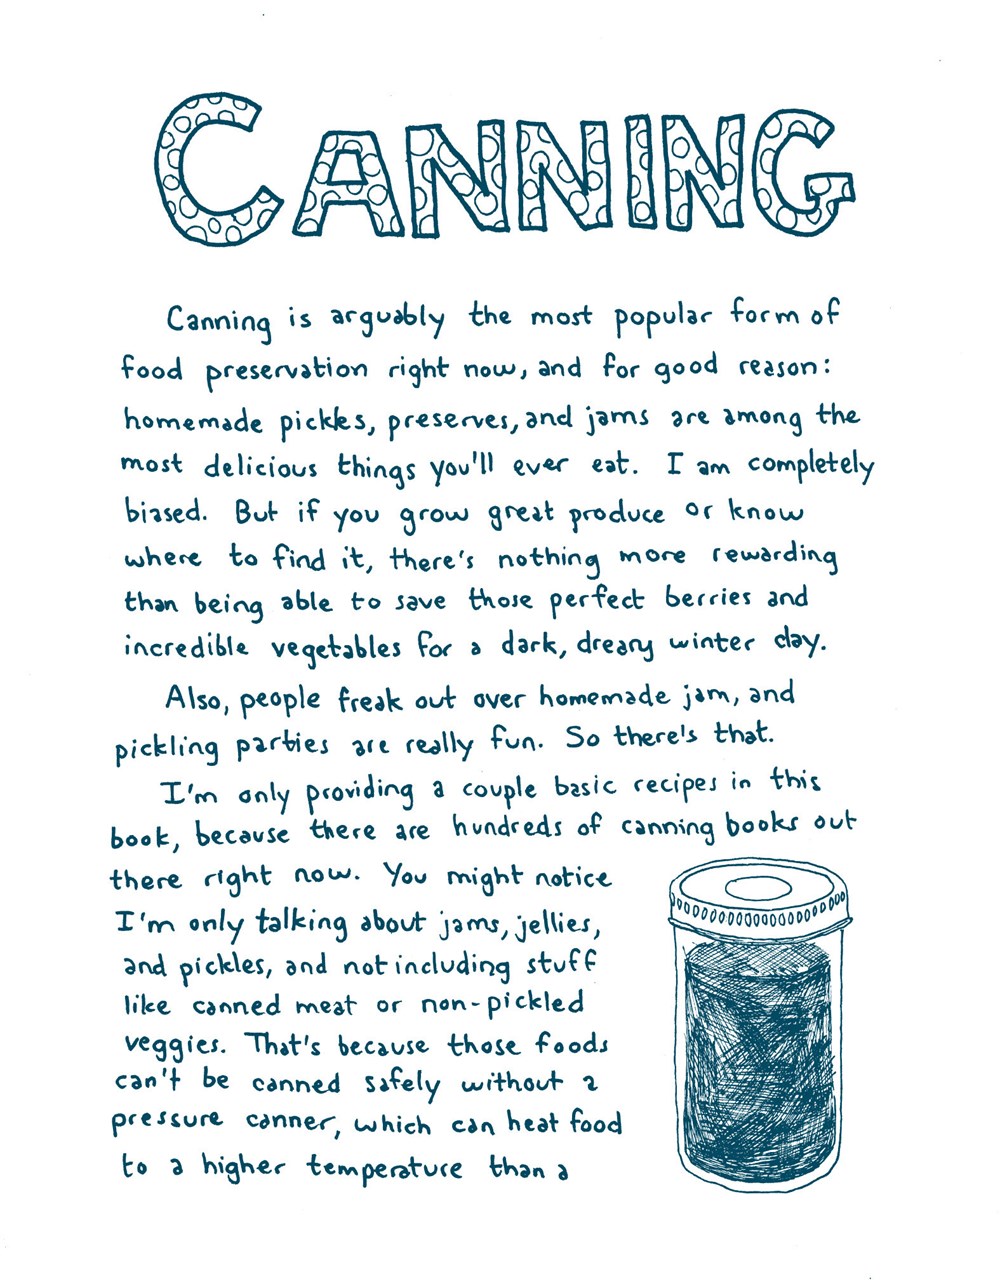 CANNING
Canning is arguably the most popular form of
food preservation right now, and for good reason:
homemade pickles, preserves, and jams are among the
most delicious things you'll ever eat. I am completely
biased. But if you grow great produce or know
where to find it, there's nothing more rewarding
than being able to save those perfect berries and
incredible vegetables for a dark, dreary winter day.
Also, people freak out over homemade jam, and
pickling parties are really fun. So there's that.
I'm only providing a couple basic recipes in this
book, because there are hundreds of canning books out
there right now. You might notice
I'm only talking about jams, jellies,
and pickles, and not including stuff
like canned meat or non-pickled
veggies. That's because those foods
can't be canned safely without a
pressure canner, which can heat food
to a higher temperature than a